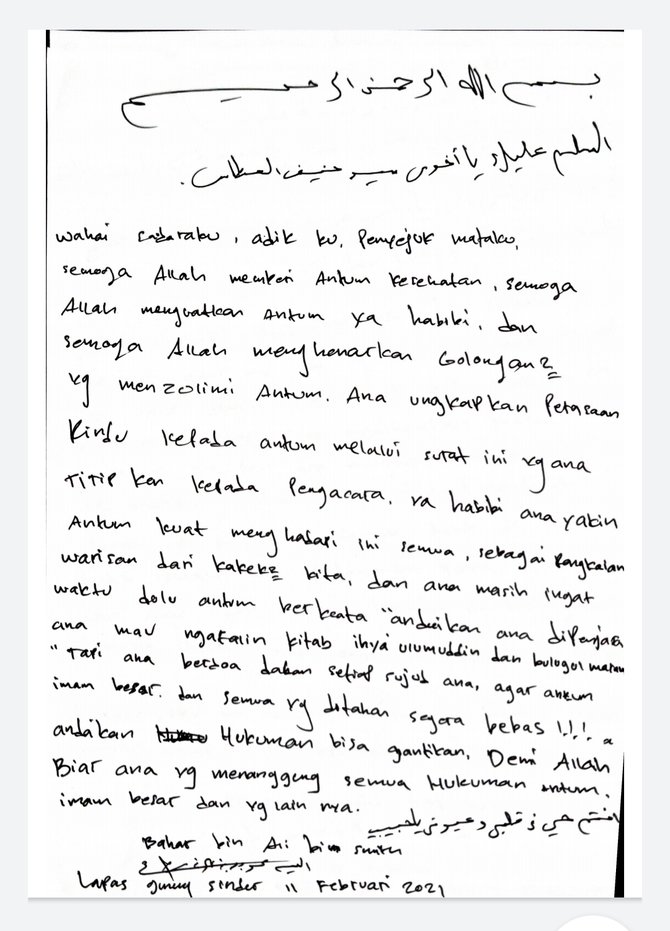 بسم الله الرحمن الرحيم
السلام عليكم يا أخوي سيد حنيف العطاس.
wahai saudaraku, adik ku, Penyejuk mataku,
semoga Allah memberi Antum kesehatan, semoga
Allah menguatkan Antum ya habibi, dan
semoga Allah menghancurkan Golongan2
yg menzolimi Antum. Ana ungkapkan Perasaan
Rindu kepada antum melalui surat ini yg ana
TITIP kan kepada Pengacara, ya habibi ana yakin
Antum kuat menghadapi ini semua, sebagai Rangkaian
warisan dari kakek2 kita, dan ana masih ingat
waktu dolu antum berkata "andaikan ana dipenjara
ana mau ngatalin kitab ihya ulumuddin dan bulogul maram
" Tapi ana berdoa dalam setiap sujud ana, agar antum
imam besar. dan semua yg ditahan segera bebas !!!
andaikan Hukuman bisa gantikan, Demi Allah
Biar ana yg menanggung semua Hukuman antum,
imam besar dan yg lain nya.
انتم في قلبي وعيوني يا حبيبي
Bahar bin Ali bin smith
Lapas gunung sindur 11 Februari 2021